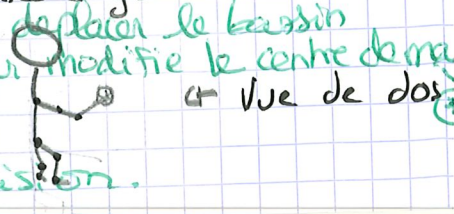 deplacer le bassin
modifie le centre de ma
← Vue de dos